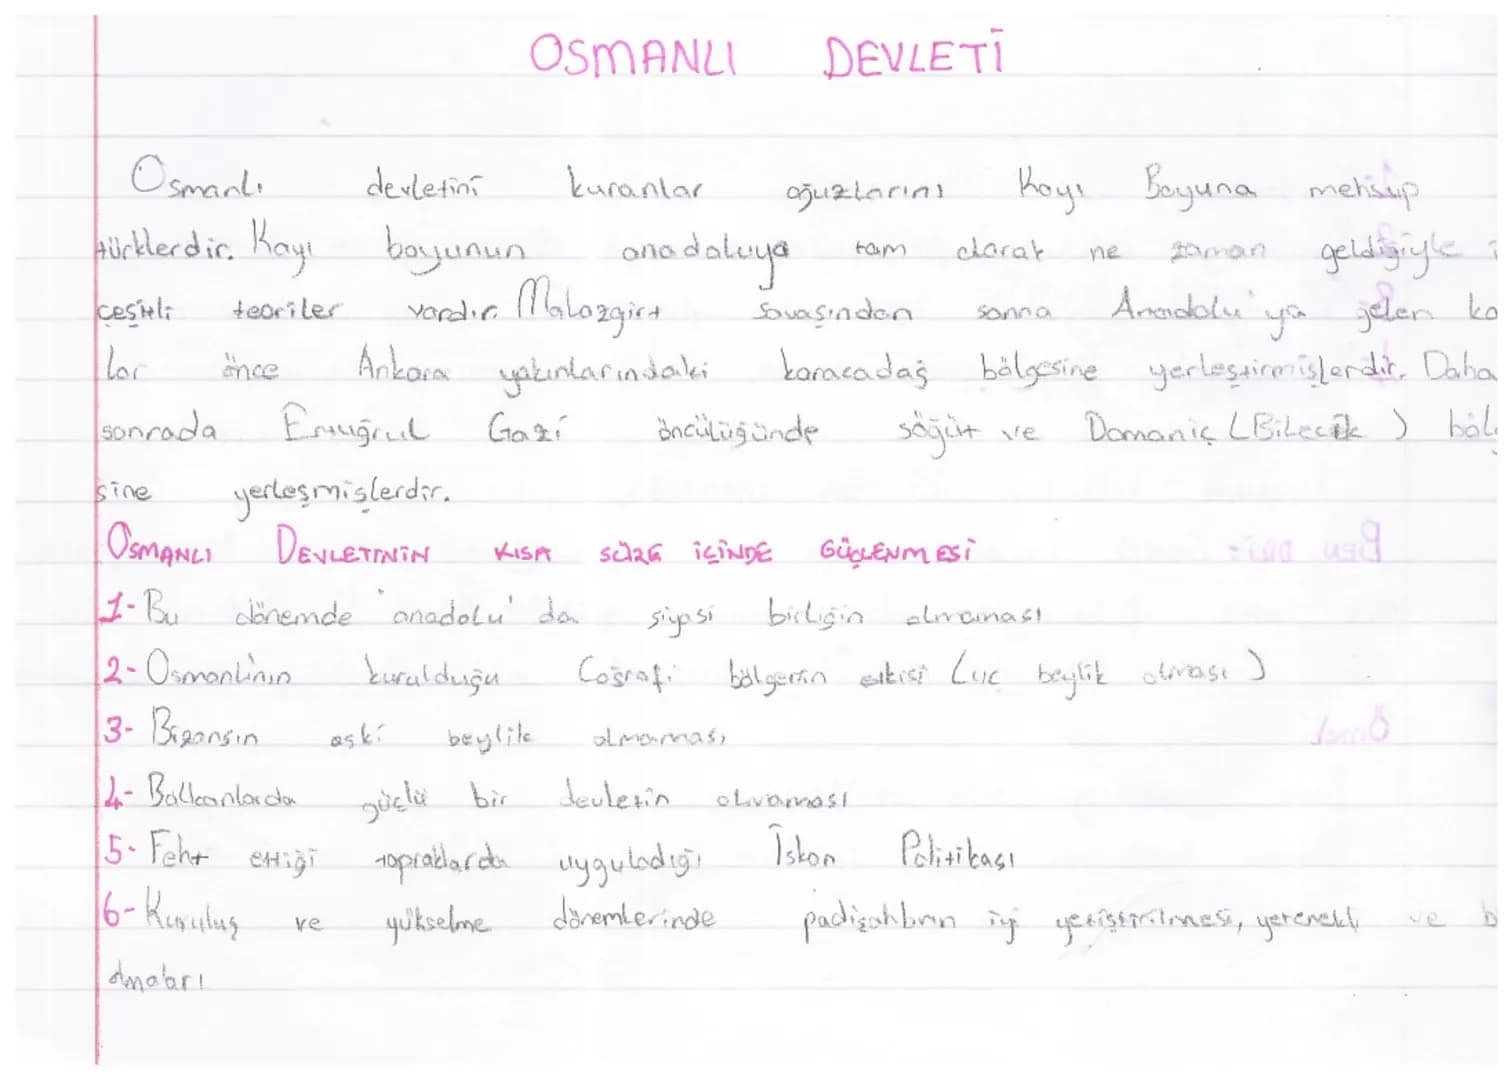 OSMANLI DEVLETİ
Osmanlı devletini kuranlar oğuzlarını Kayı Boyuna mensup
türklerdir. Kayı boyunun anadoluya tam olarak ne zaman geldiğiyle i
çeşitli teoriler vardır. Malazgirt Savaşından sonna Anadolu'ya gelen ka
lar önce Ankara yakınlarındaki karacadağ bölgesine yerleştirmişlerdir. Daha
sonrada Ertuğrul Gazi öncülüğünde söğüt ve Domaniç (Bilecik) bölg
sine yerleşmişlerdir.
OSMANLI DEVLETİNİN KISA SÜRE İÇİNDE GÜÇLENMESİ
1- Bu dönemde anadolu'da siyasi birliğin olmaması
2- Osmanlı'nın kurulduğu Coğrafi bölgenin etkisi (uc beylik olması)
3- Bizansın eski beylik olmaması
4- Balkanlarda güçlü bir devletin olmaması
5- Feht ettiği topraklarda uyguladığı İskan Politikası
6- Kuruluş ve yükselme dönemlerinde padişahların iyi yetiştirilmesi, yetenekli ve b
olmaları